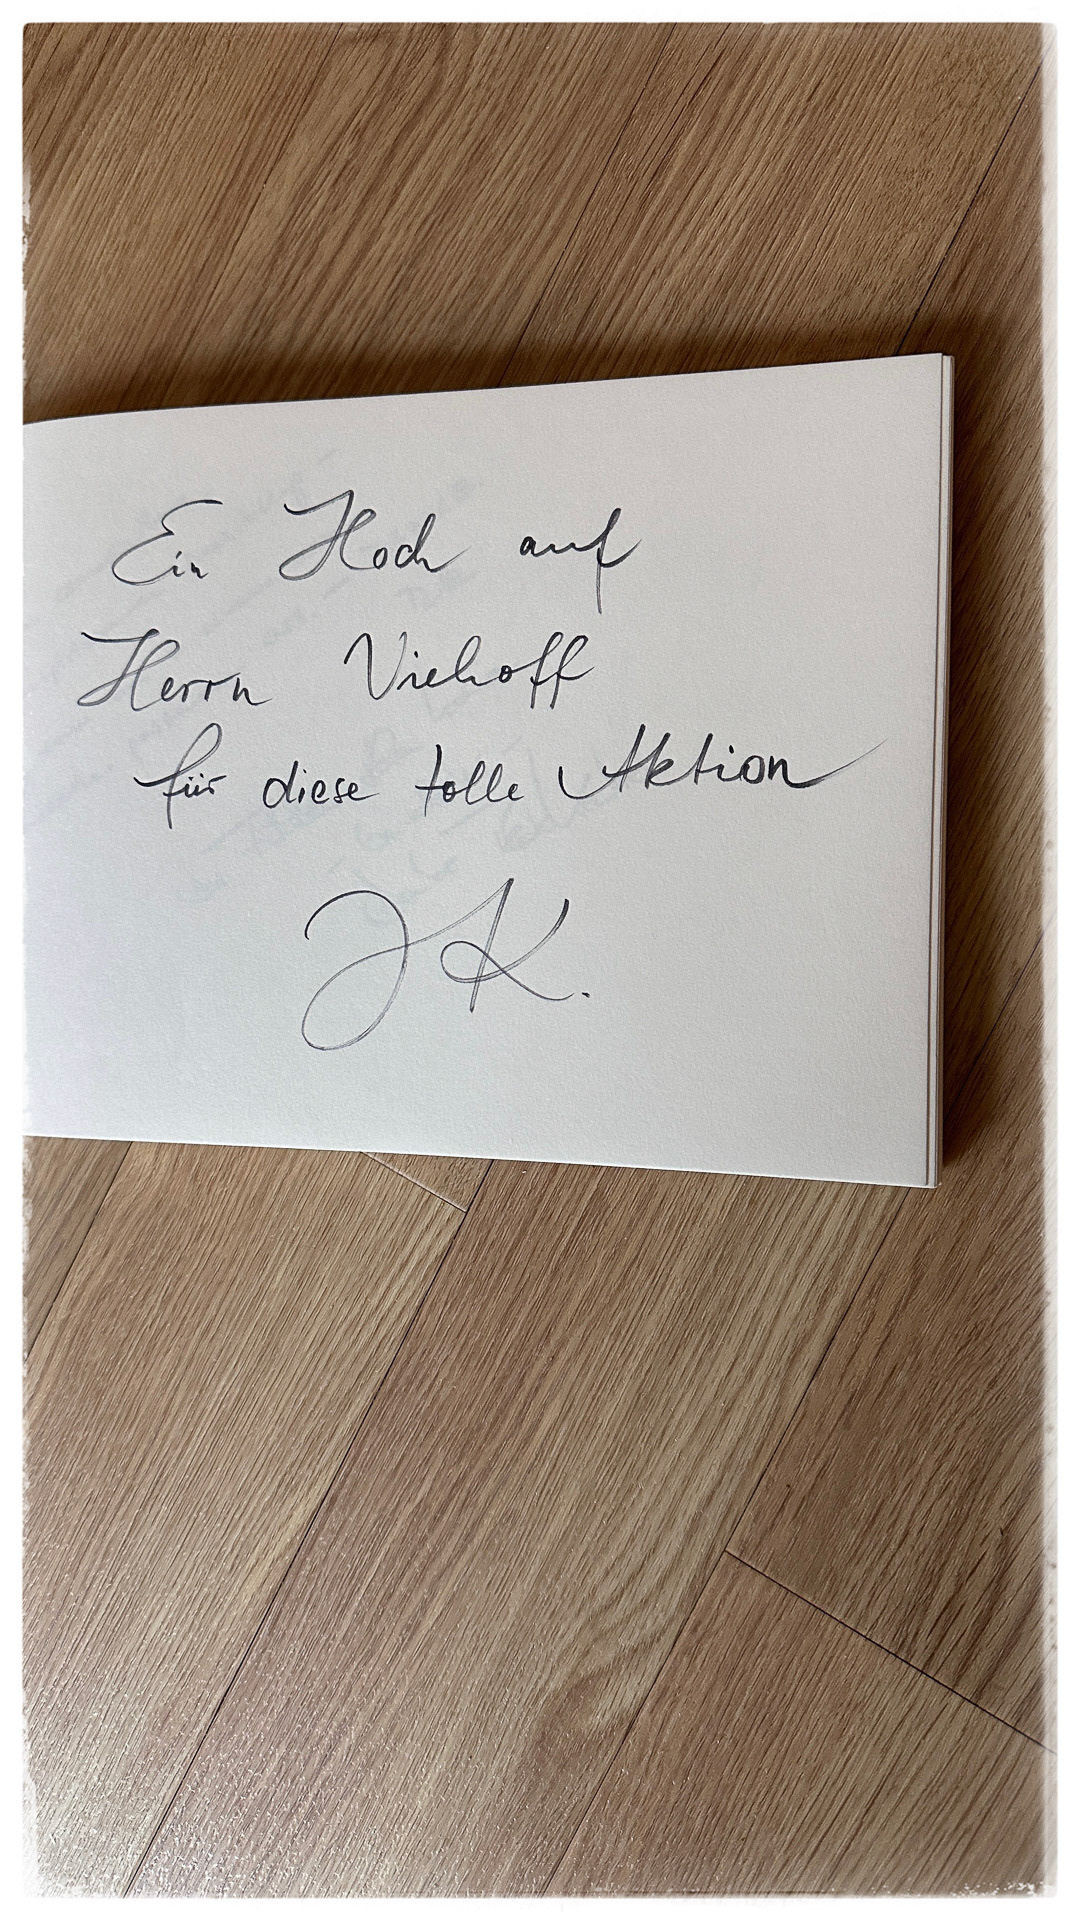 Ein Hoch auf
Herrn Viehoff
für diese tolle Aktion
JK.